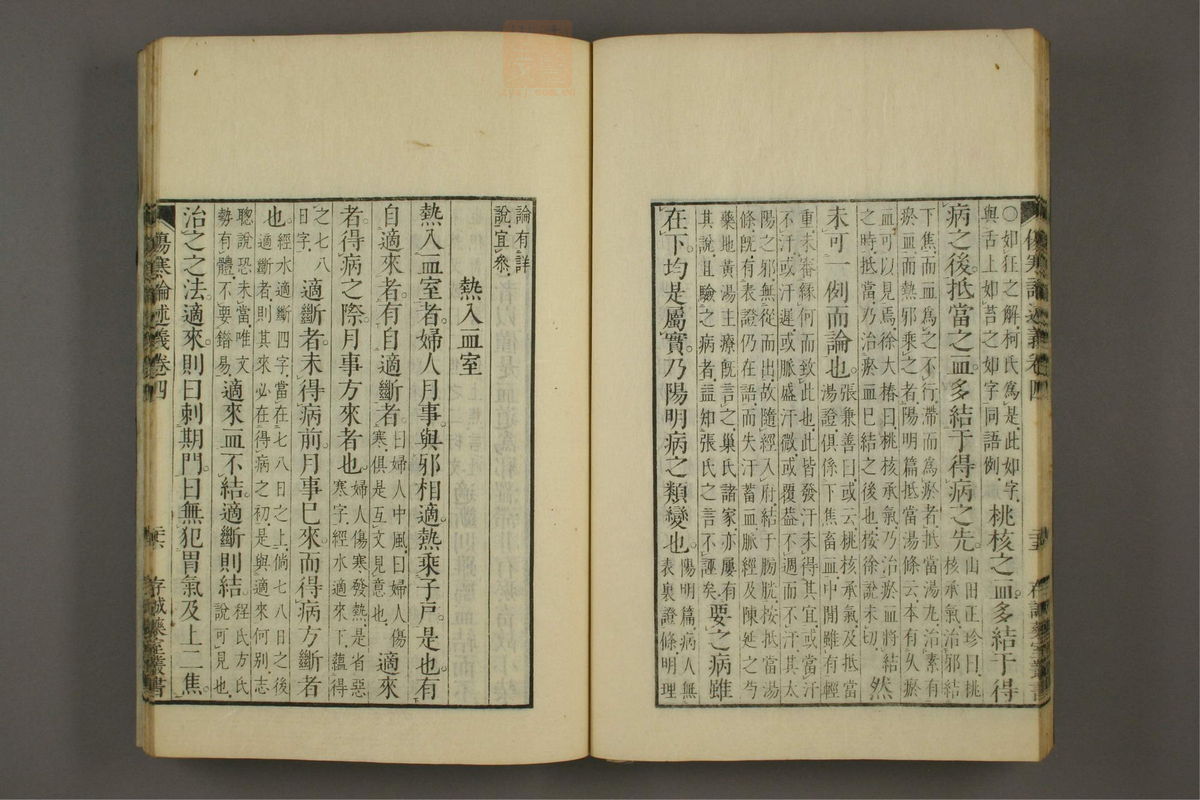 ○如狂之解。柯氏爲是。此如字。
與舌上如苔之如字。同語例。
桃核之血。多結于得
病之後。抵當之血。多結于得病之先。
山田正珍曰。桃
核承氣。治邪結
下焦而血爲之不行。帶而爲瘀者。抵當湯丸。治素有
瘀血而熱邪乘之者。陽明篇抵當湯條云。本有久瘀
血可以見焉。徐大椿曰。桃核承氣。乃治瘀血將結
之時。抵當。乃治瘀血已結之後也。按徐說未切。
然
未可一例而論也。
張兼善曰。或云。桃核承氣及抵當
湯證。俱係下焦畜血。中閒雖有輕
重。未審緣何而致此也。此皆發汗未得其宜。或當汗
不汗。或汗遲。或脈盛汗微。或覆葢不週而不汗。其太
陽之邪無從而出。故隨經入府。結于膀胱。按抵當湯
條。既有表證仍在語。而失汗蓄血。脈經及陳延之芍
藥地黃湯主療。既言之。巢氏諸家。亦屢有
其說。且驗之病者。益知張氏之言不誣矣。
要之病雖
在下。均是屬實。乃陽明病之類變也。
陽明篇。病人無
表裏證條明理
傷寒論述義卷四
存誠藥室叢書
論有詳
說。宜參。
熱入血室
熱入血室者。婦人月事。與邪相適。熱乘子戶。是也。有
自適來者。有自適斷者。
曰婦人中風。曰婦人傷
寒。俱是互文見意也。
適來
者。得病之際。月事方來者也。
婦人傷寒發熱。是省惡
寒字。經水適來下。蘊得
之七八
日字。
適斷者。未得病前。月事已來。而得病方斷者
也。
經水適斷四字。當在七八日之上。倘七八日之後
適斷者。則其來必在得病之初。是與適來何别。志
聰說恐未當。唯文
勢有體。不要錯易。
適來血不結。適斷則結。
程氏方氏
說可見也。
治之之法。適來。則曰刺期門。曰無犯胃氣及上二焦。
傷寒論述義卷四
存誠藥室叢書